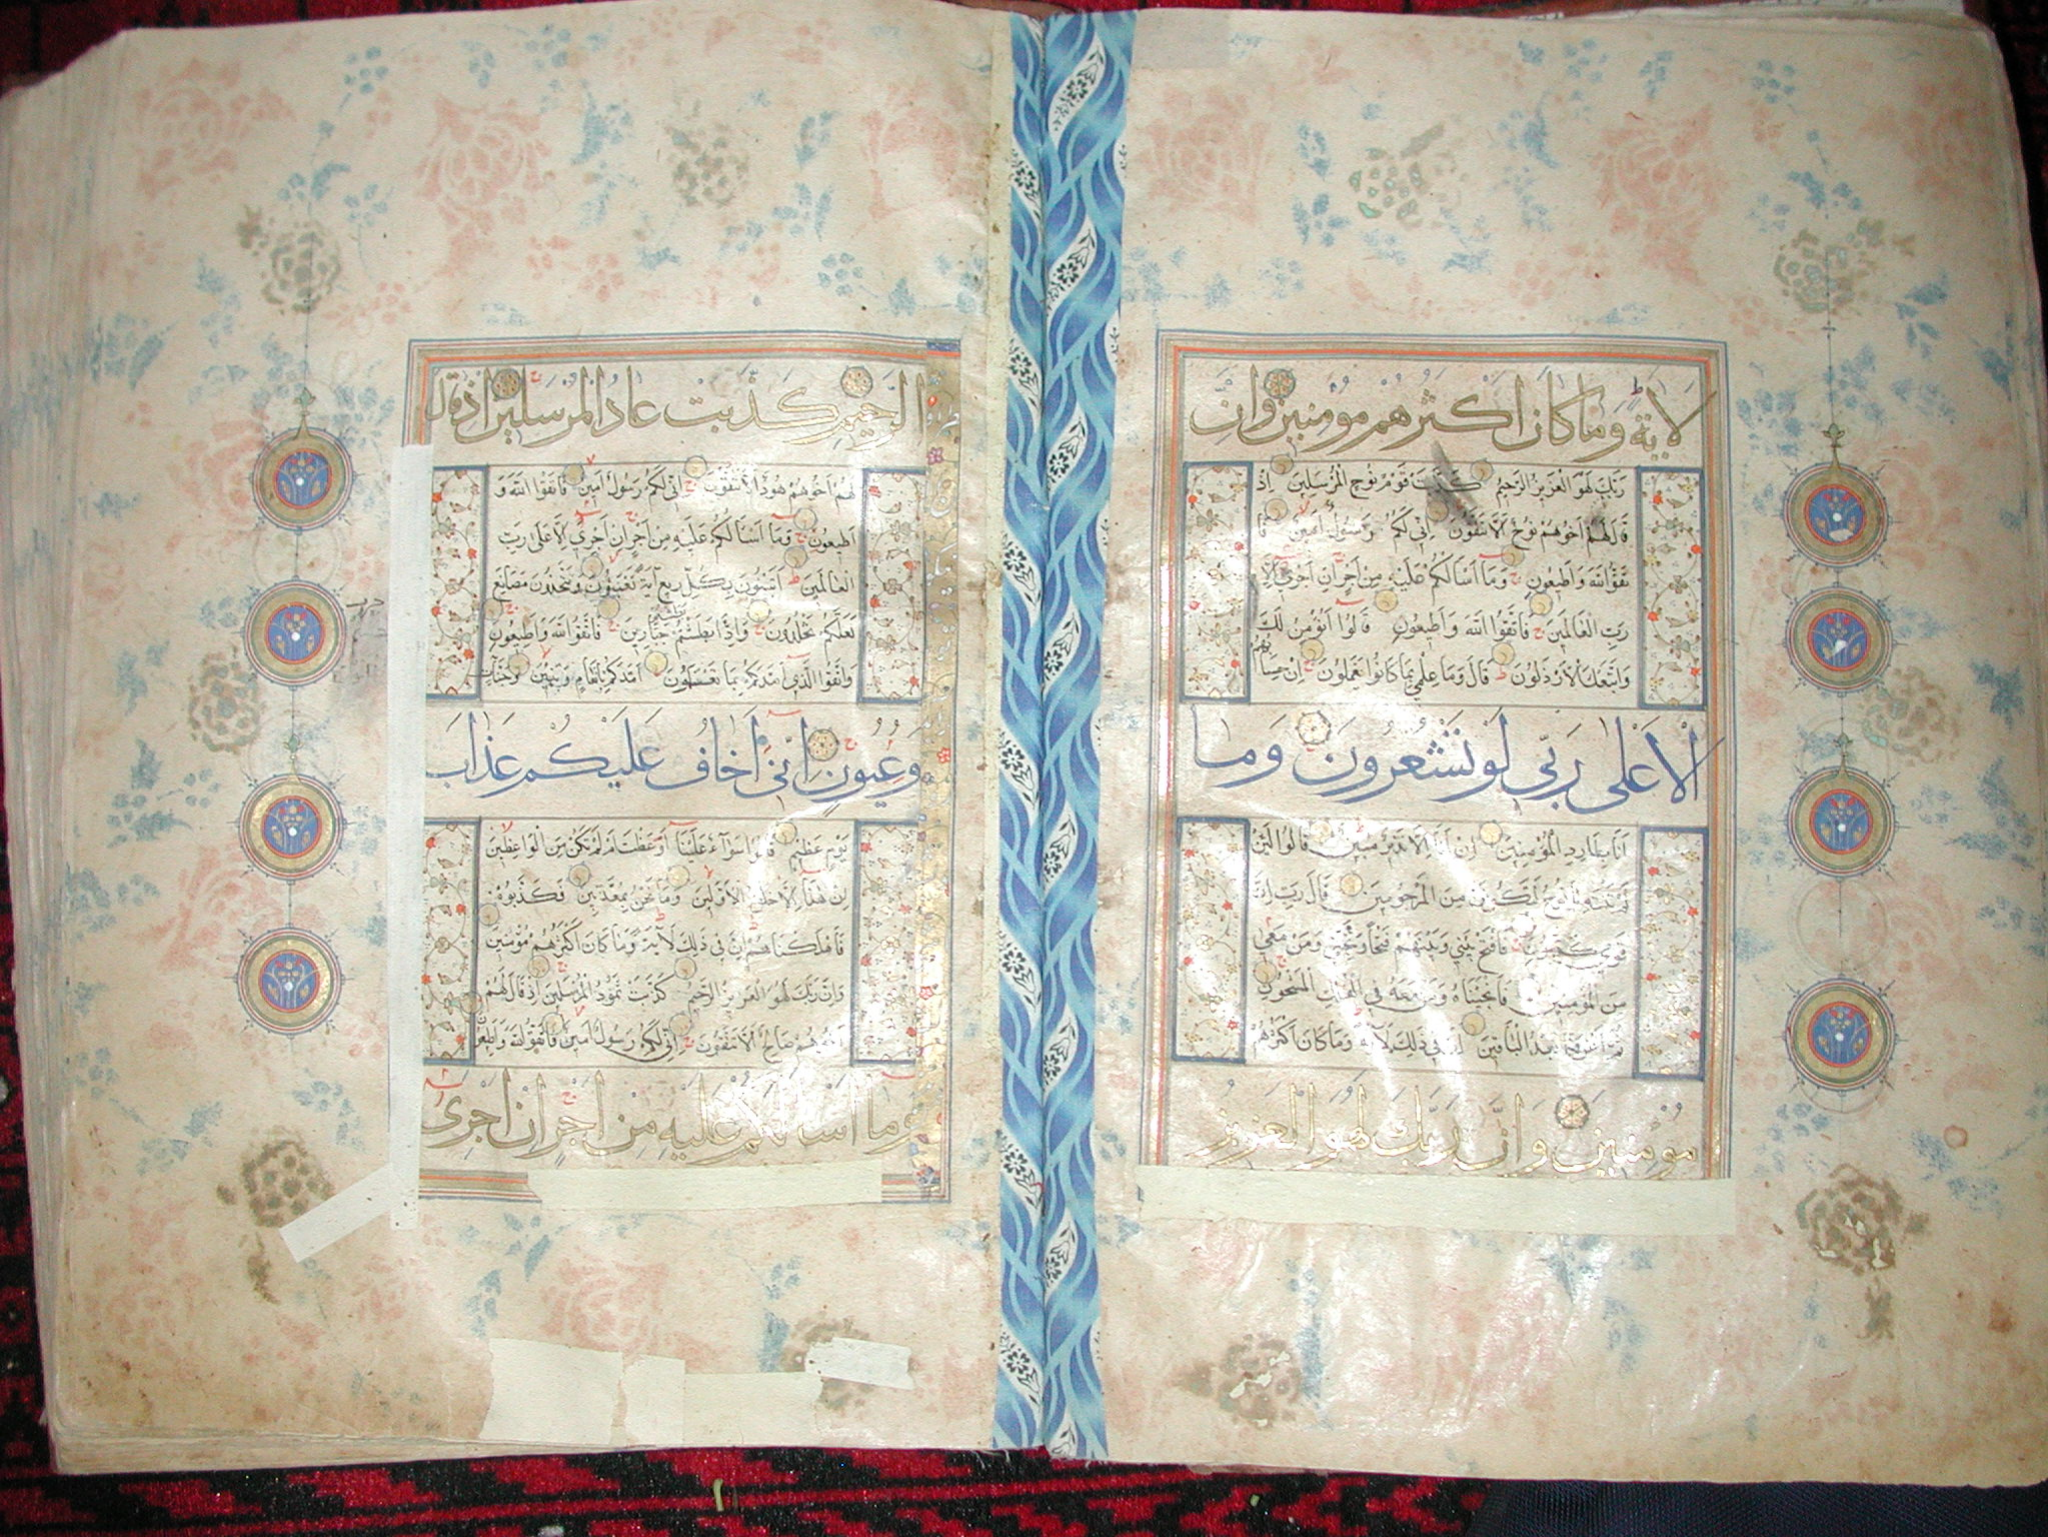 لاية وما كان اكثرهم مومنين وان
ربك لهو العزيز الرحيم كذبت قوم نوح المرسلين اذ
قال لهم اخوهم نوح الا تتقون اني لكم رسول امين فا
تقوا الله واطيعون وما اسالكم عليه من اجر ان اجري الا
رب العالمين فاتقوا الله واطيعون قالوا انؤمن لك
واتبعك الارذلون قال وما علمي بما كانوا يعملون ان حسابهم
الا على ربي لو تشعرون وما
انا بطارد المؤمنين ان انا الا نذير مبين قالوا لئن
لم تنته يا نوح لتكونن من المرجومين قال رب ان
قومي كذبون فافتح بيني وبينهم فتحا ونجني ومن معي
من المؤمنين فانجيناه ومن معه في الفلك المشحون
ثم اغرقنا بعد الباقين ان في ذلك لاية وما كان اكثرهم
مومنين وان ربك لهو العزيز
الرحيم كذبت عاد المرسلين اذ قال
لهم اخوهم هود الا تتقون اني لكم رسول امين فاتقوا الله و
اطيعون وما اسالكم عليه من اجر ان اجري الا على رب
العالمين اتبنون بكل ريع اية تعبثون وتتخذون مصانع
لعلكم تخلدون واذا بطشتم بطشتم جبارين فاتقوا الله واطيعون
واتقوا الذي امدكم بما تعلمون امدكم بانعام وبنين وجنات
وعيون اني اخاف عليكم عذاب
يوم عظيم قالوا سواء علينا اوعظت ام لم تكن من الواعظين
ان هذا الا خلق الاولين وما نحن بمعذبين فكذبوه
فاهلكناهم ان في ذلك لاية وما كان اكثرهم مؤمنين
وان ربك لهو العزيز الرحيم كذبت ثمود المرسلين اذ قال لهم
اخوهم صالح الا تتقون اني لكم رسول امين فاتقوا الله واطيعون
وما اسالكم عليه من اجر ان اجري